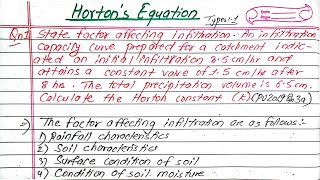 Horton's Equation
Type:-1
Qn1 State factor affecting infiltration. An infiltration
capacity curve prepared for a catchment indic-
ated an initial infiltration 8.5 cm/hr and
attains a constant valve of 1.5 cm/hr after
8 hrs. The total precipitation volume is 6.5cm.
Calculate the Horton constant (k)
=) The factor affecting infiltration are as follows:-
1) Rainfall characteristics
2) Soil characteristics
3) Surface condition of soil
4) Condition of soil moisture